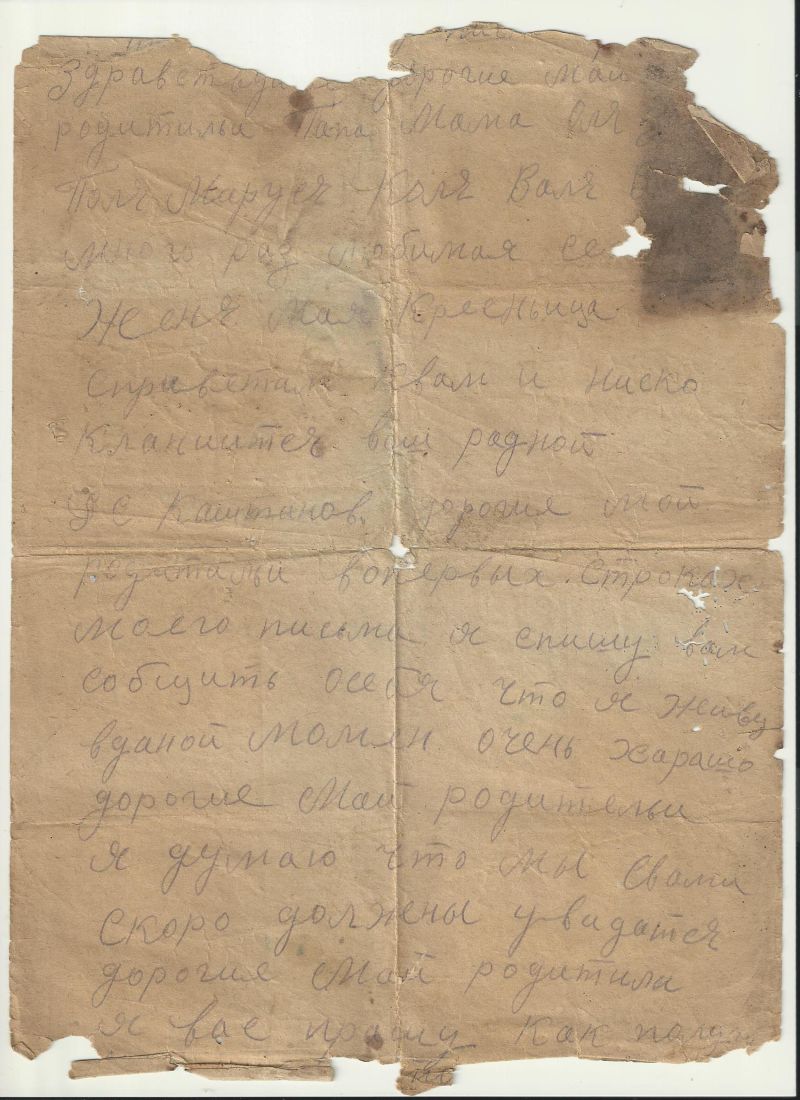 Здравствуй дорогие Маи
родитильи Папа Мама Оля
Поля Маруся Коля Валя
много раз любимая се
Женя Мая Кресньица
Сприветам Квам и ниско
Кланиится ваш радной
Каштанов. дорогия мои
родитильи вопервых строках
моего письма я спишу вам
собщить осебя что я живу
вданой момян очень харашо
дорогие Маи родительи
я думаю что мы Свами
Скоро должны увидатся
дорогия Маи родитили
я вас прашу как палу